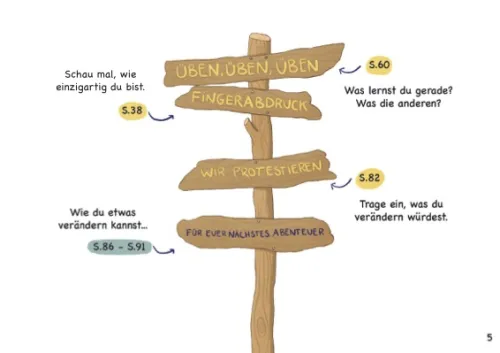 ÜBEN, ÜBEN, ÜBEN
S.60
Was lernst du gerade?
Was die anderen?
Schau mal, wie
einzigartig du bist.
S.38
FINGERABDRUCK
WIR PROTESTIEREN
S.82
Trage ein, was du
verändern würdest.
Wie du etwas
verändern kannst...
S.86 - S.91
FÜR EUER NÄCHSTES ABENTEUER
5